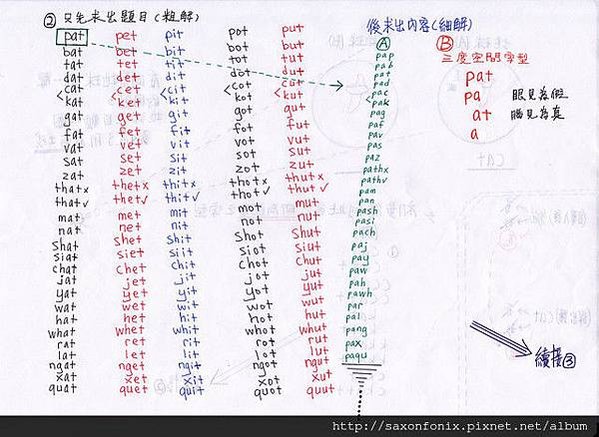 ② 只先求出題目(粗解) 後求出內容(細解)
pat pet pit pot put Ⓐ Ⓑ
bat bet bit bot but pap 三度空間字型
tat tet tit tot tut pab pat
dat det dit dot dut pat pa 眼見為假
<cat <cet <cit <cot <cut pad at 腦見為真
kat ket kit kot kut pac a
gat get git got gut pak
fat fet fit fot fut pag
vat vet vit vot vut paf
sat set sit sot sut pav
zat zet zit zot zut pas
thatx thetx thitx thotx thutx paz
thatv thetv thitv thotv thutv pathx
mat met mit mot mut pathv
nat net nit not nut pam
shat shet shit shot shut pan
siat siet siit siot siut pash
chat chet chit chot chut pasi
jat jet jit jot jut pach
yat yet yit yot yut paj
wat wet wit wot wut pay
hat het hit hot hut paw
what whet whit whot whut pah
rat ret rit rot rut pawh
lat let lit lot lut par
ngat nget ngit ngot ngut pal
xat xet xit xot xut pang
quat quet quit quot quut pax
paqu
續接③
http://saxonfonix.pixnet.net/album